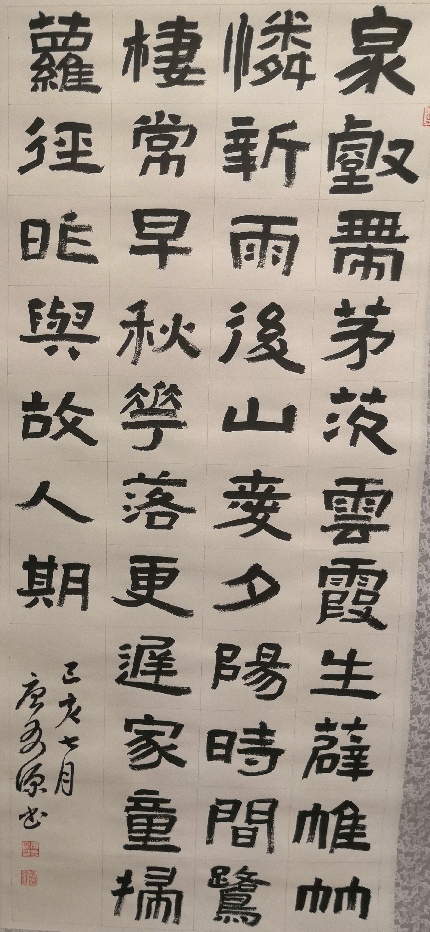 泉壑帶茅茨雲霞生薜帷竹
憐新雨後山愛夕陽時間鷺
棲常早秋華落更遲家童掃
蘿徑昨與故人期
己亥七月
唐源书